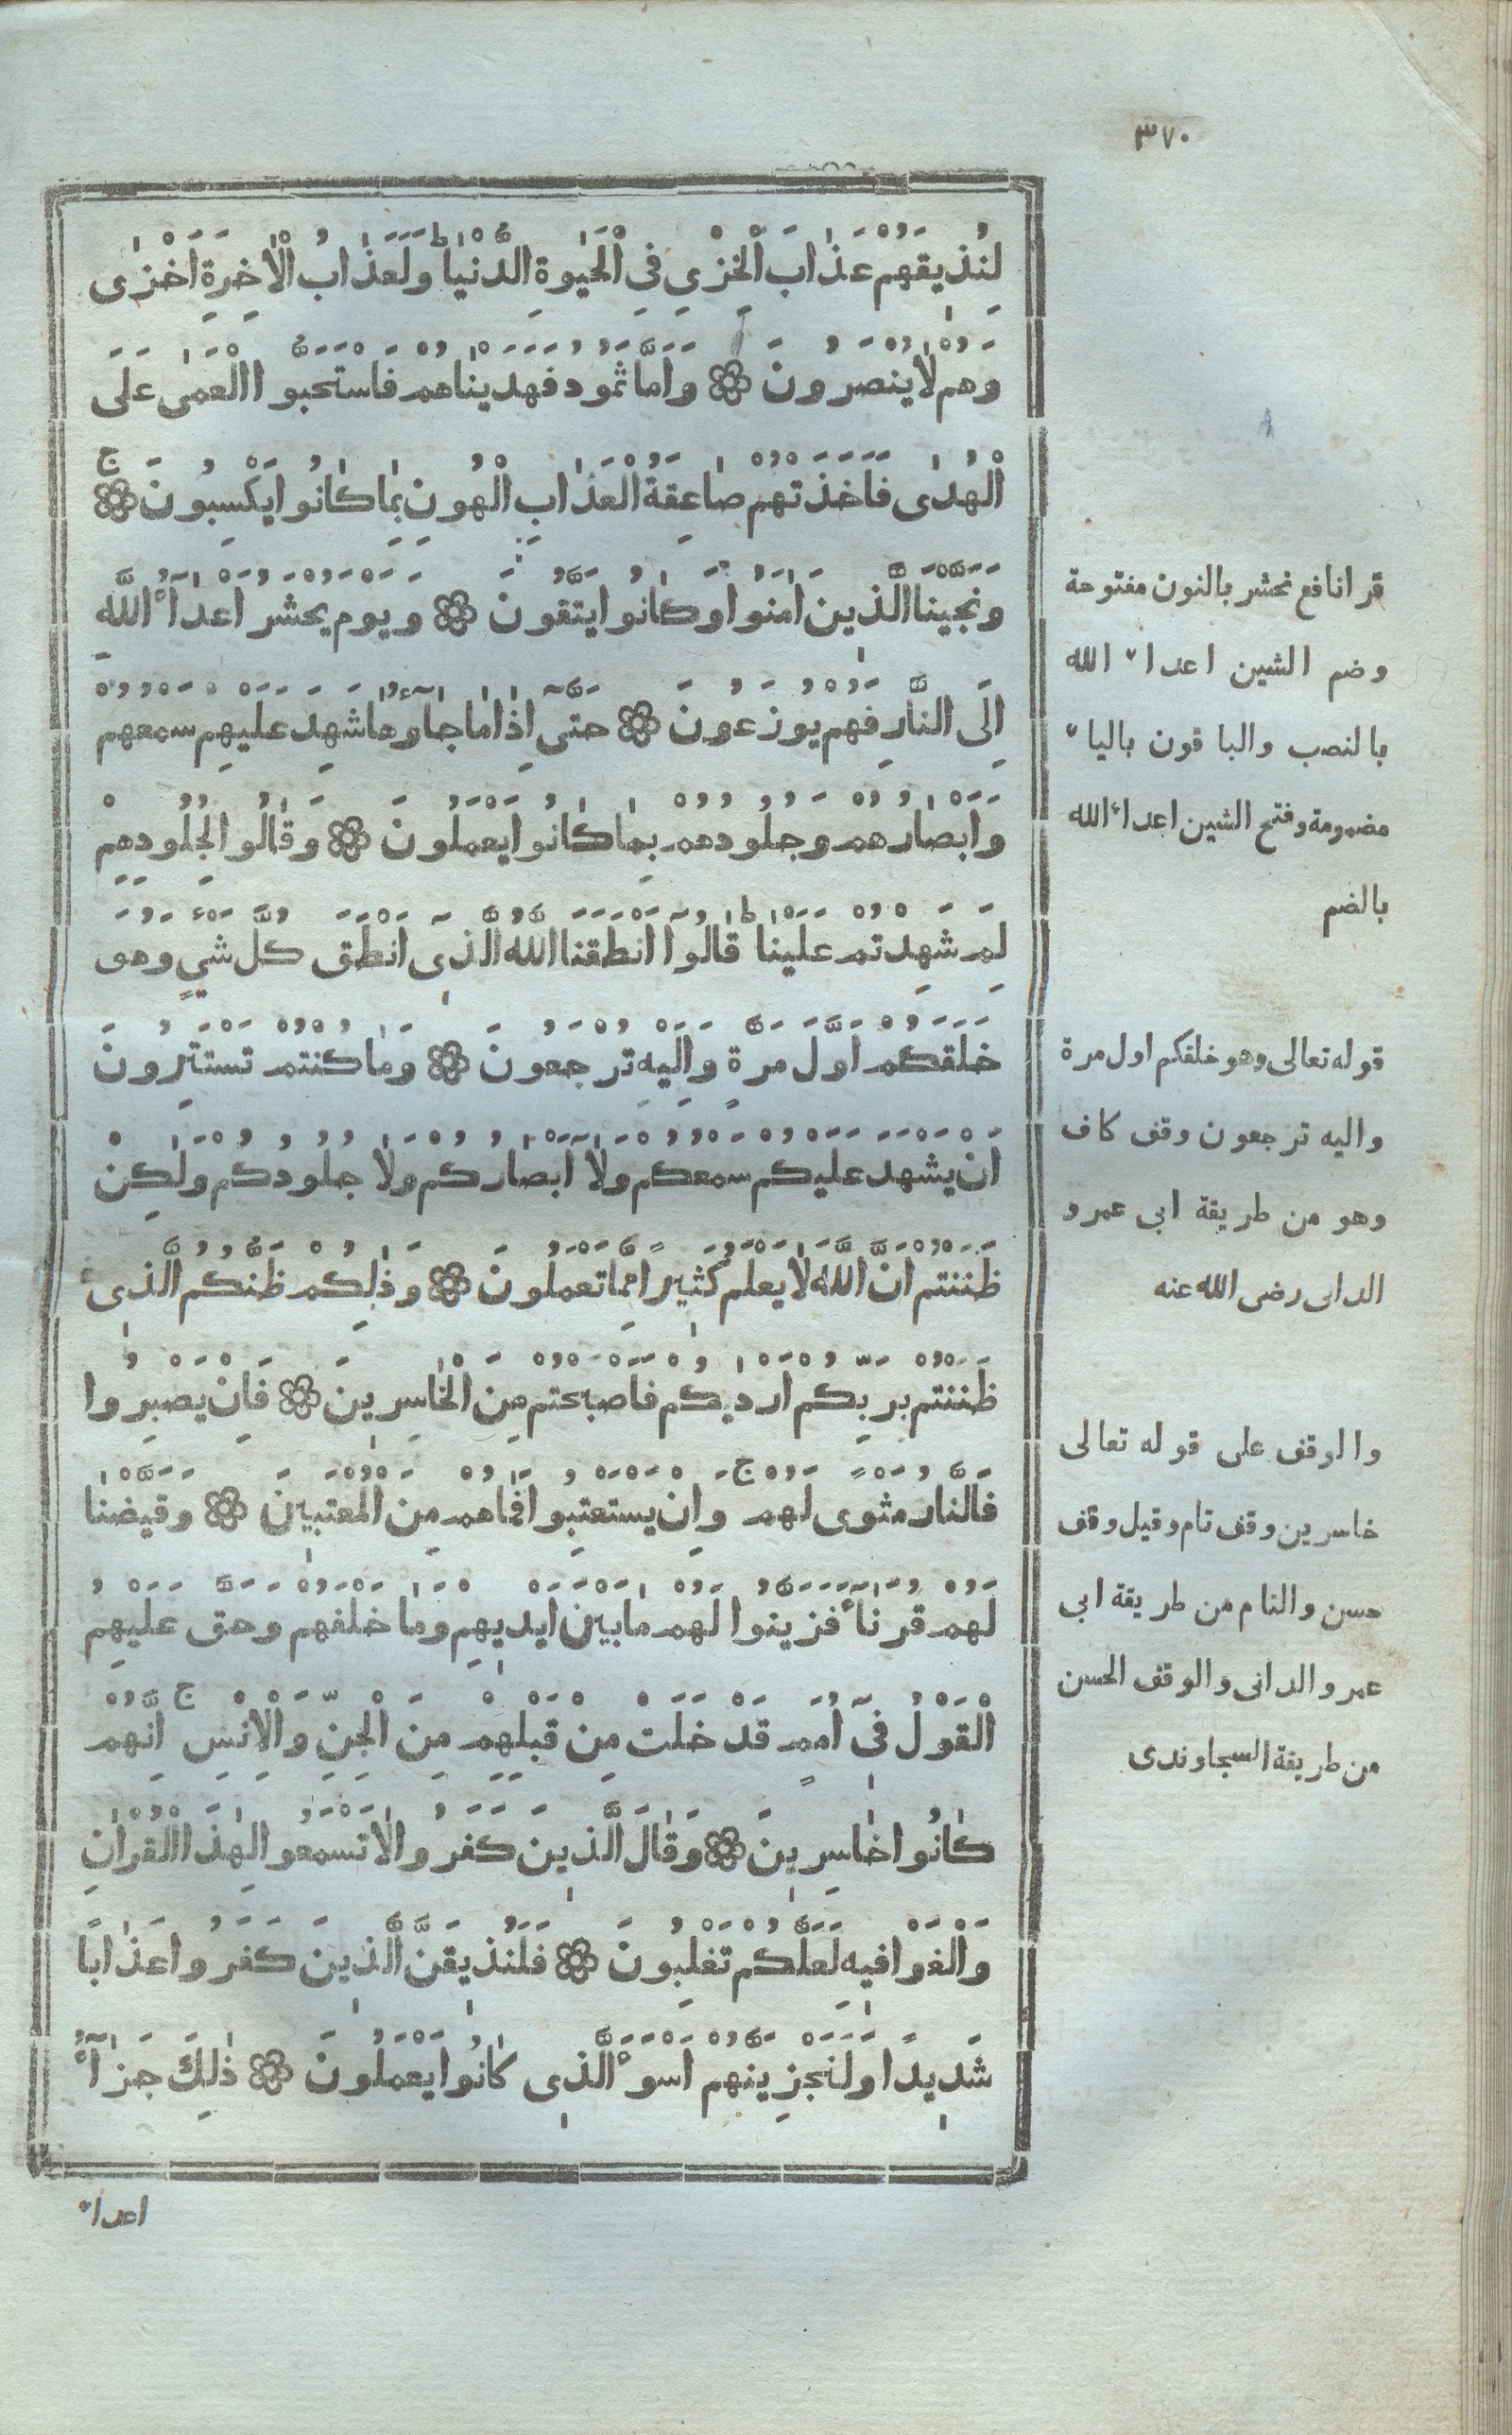 ٣٧٠
لِنُذِيقَهُمْ عَذَابَ الْخِزْيِ فِي الْحَيٰوةِ الدُّنْيَا ط وَلَعَذَابُ الْاٰخِرَةِ اَخْزٰى
وَهُمْ لَا يُنْصَرُونَ ۞ وَاَمَّا ثَمُودُ فَهَدَيْنَاهُمْ فَاسْتَحَبُّوا الْعَمٰى عَلَى
الْهُدٰى فَاَخَذَتْهُمْ صَاعِقَةُ الْعَذَابِ الْهُونِ بِمَا كَانُوا يَكْسِبُونَ ج ۞
وَنَجَّيْنَا الَّذِينَ اٰمَنُوا وَكَانُوا يَتَّقُونَ ۞ وَيَوْمَ يُحْشَرُ اَعْدَآءُ اللّٰهِ
اِلَى النَّارِ فَهُمْ يُوزَعُونَ ۞ حَتّٰٓى اِذَا مَا جَآؤُهَا شَهِدَ عَلَيْهِمْ سَمْعُهُمْ
وَاَبْصَارُهُمْ وَجُلُودُهُمْ بِمَا كَانُوا يَعْمَلُونَ ۞ وَقَالُوا لِجُلُودِهِمْ
لِمَ شَهِدْتُمْ عَلَيْنَا ط قَالُوٓا اَنْطَقَنَا اللّٰهُ الَّذِٓى اَنْطَقَ كُلَّ شَيْءٍ وَهُوَ
خَلَقَكُمْ اَوَّلَ مَرَّةٍ وَاِلَيْهِ تُرْجَعُونَ ۞ وَمَا كُنْتُمْ تَسْتَتِرُونَ
اَنْ يَشْهَدَ عَلَيْكُمْ سَمْعُكُمْ وَلَآ اَبْصَارُكُمْ وَلَا جُلُودُكُمْ وَلٰكِنْ
ظَنَنْتُمْ اَنَّ اللّٰهَ لَا يَعْلَمُ كَثِيرًا مِمَّا تَعْمَلُونَ ۞ وَذٰلِكُمْ ظَنُّكُمُ الَّذِى
ظَنَنْتُمْ بِرَبِّكُمْ اَرْدٰيكُمْ فَاَصْبَحْتُمْ مِنَ الْخَاسِرِينَ ۞ فَاِنْ يَصْبِرُوا
فَالنَّارُ مَثْوًى لَهُمْ ج وَاِنْ يَسْتَعْتِبُوا فَمَا هُمْ مِنَ الْمُعْتَبِينَ ۞ وَقَيَّضْنَا
لَهُمْ قُرَنَآءَ فَزَيَّنُوا لَهُمْ مَا بَيْنَ اَيْدِيهِمْ وَمَا خَلْفَهُمْ وَحَقَّ عَلَيْهِمُ
الْقَوْلُ فِىٓ اُمَمٍ قَدْ خَلَتْ مِنْ قَبْلِهِمْ مِنَ الْجِنِّ وَالْاِنْسِ ج اِنَّهُمْ
كَانُوا خَاسِرِينَ ۞ وَقَالَ الَّذِينَ كَفَرُوا لَا تَسْمَعُوا لِهٰذَا الْقُرْاٰنِ
وَالْغَوْا فِيهِ لَعَلَّكُمْ تَغْلِبُونَ ۞ فَلَنُذِيقَنَّ الَّذِينَ كَفَرُوا عَذَابًا
شَدِيدًا وَلَنَجْزِيَنَّهُمْ اَسْوَءَ الَّذِى كَانُوا يَعْمَلُونَ ۞ ذٰلِكَ جَزَآءُ
اعداء
قرا نافع نحشر بالنون مفتوحة
وضم الشين اعداء الله
بالنصب والباقون بالياء
مضمومة وفتح الشين اعداء الله
بالضم
قوله تعالى وهو خلقكم اول مرة
واليه ترجعون وقف كاف
وهو من طريقة ابى عمرو
الدانى رضى الله عنه
والوقف على قوله تعالى
خاسرين وقف تام وقيل وقف
حسن والتام من طريقة ابى
عمرو الدانى والوقف الحسن
من طريقة السجاوندى